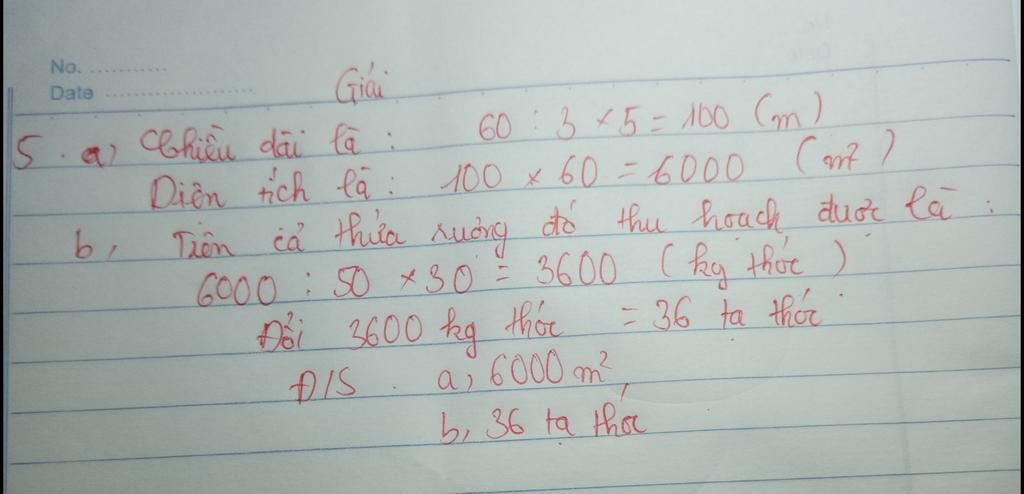 No. ...........
Date ......................
Giải
5. a, Chiều dài là : 60 : 3 × 5 = 100 (m)
Diện tích là : 100 × 60 = 6000 (m²)
b, Trên cả thửa ruộng đó thu hoạch được là :
6000 : 50 × 30 = 3600 (kg thóc)
Đổi 3600 kg thóc = 36 tạ thóc.
Đ/S . a, 6000 m²,
b, 36 tạ thóc